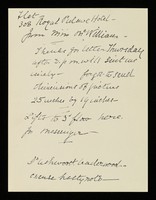 Flat
306 Royal Palace Hotel
from Mrs McWilliams.
Thanks for letter Thursday
after 2 p.m. will suit us
nicely - forgot to send
dimensions of picture
25 inches by 19 inches
Lift to 3rd floor here.
for messenger -
excuse hasty note -